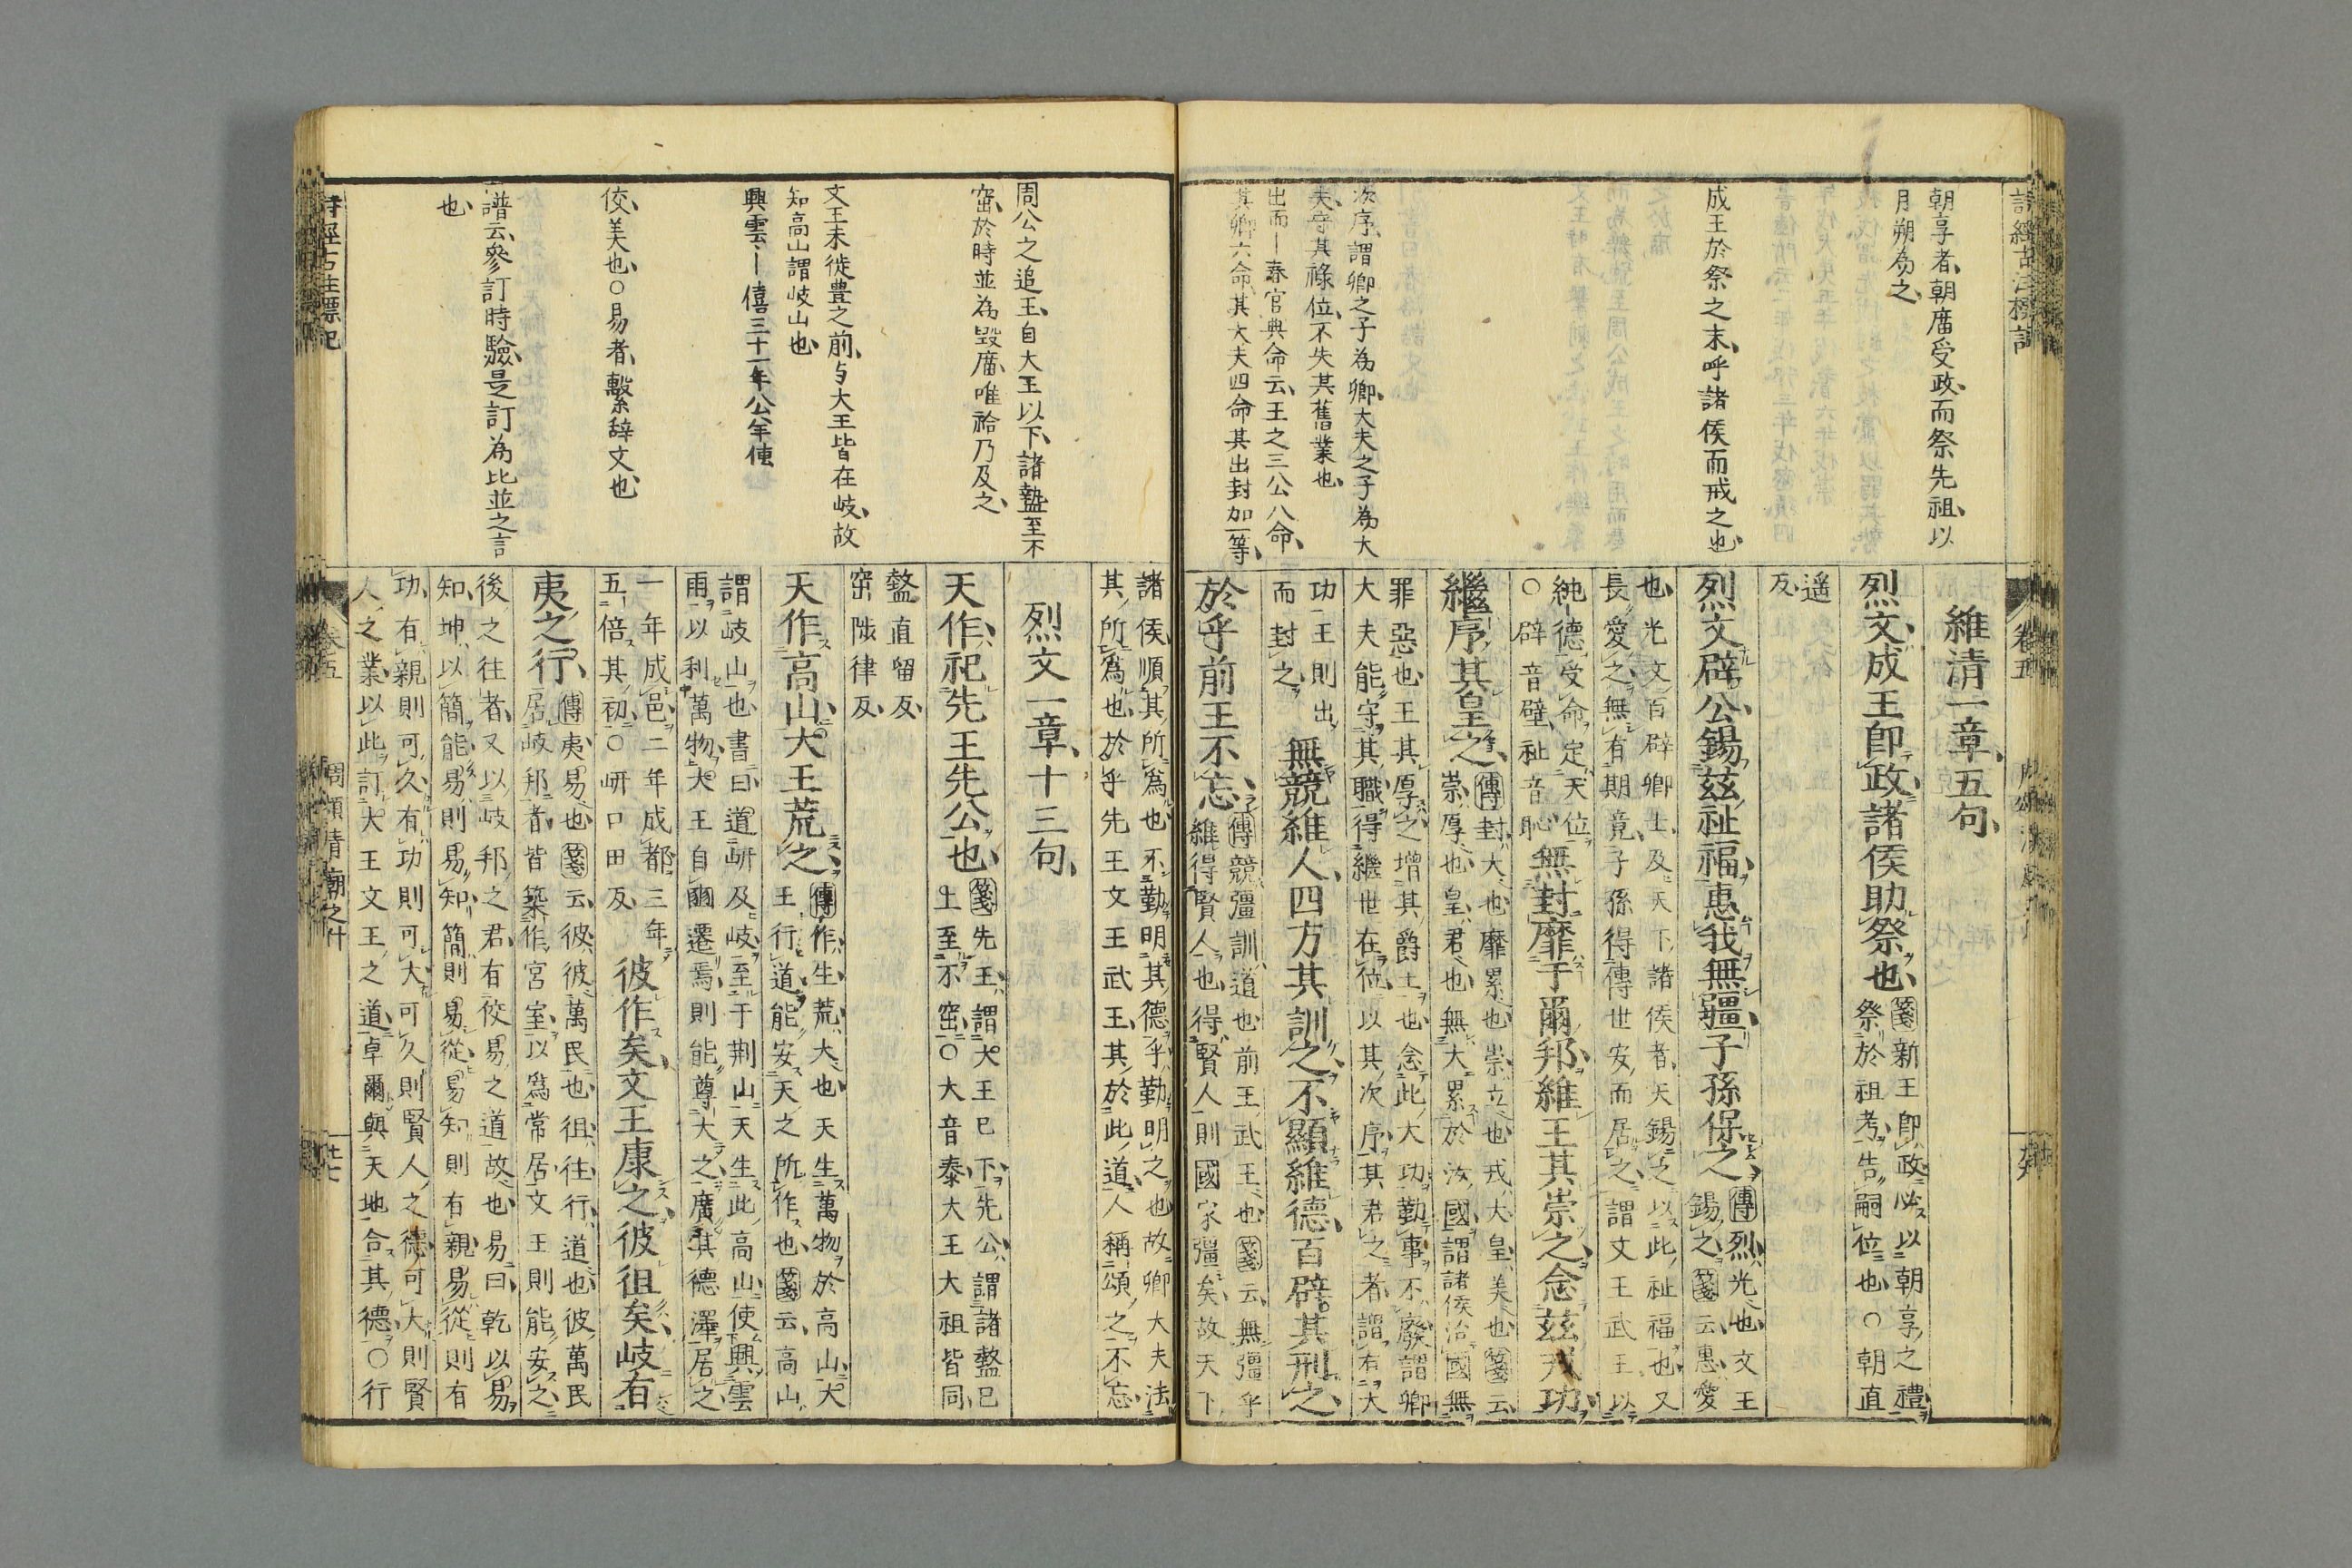 朝享者朝廟受政而祭先祖以
月朔為之
成王於祭之末呼諸侯而戒之也
次序謂卿之子為卿大夫之子為大
夫守其祿位不失其舊業也
出而〡春官典命云王之三公八命
其卿六命其大夫四命其出封加一等
維清一章五句
烈文成王即政諸侯助祭也
箋新王即政必以朝享之禮
祭於祖考告嗣位也○朝直
遥
反
烈文辟公錫茲祉福惠我無疆子孫保之
傳烈光也文王
錫之箋云惠愛
也光文百辟卿士及天下諸侯者天錫之以此祉福也又
長愛之無有期竟子孫得傳世安而居之謂文王武王以
純德受命定天位
○辟音壁祉音恥
無封靡于爾邦維王其崇之念茲戎功
繼序其皇之
傳封大也靡累也崇立也戎大皇美也箋云
崇厚也皇君也無大累於汝國謂諸侯治國無
罪惡也王其厚之增其爵土也念此大功勤事不廢謂卿
大夫能守其職得繼世在位以其次序其君之者謂有大
功王則出
而封之
無競維人四方其訓之不顯維德百辟其刑之
於乎前王不忘
傳競彊訓道也前王武王也箋云無彊乎
維得賢人也得賢人則國家彊矣故天下
諸侯順其所為也不勤明其德乎勤明之也故卿大夫法
其所為也於乎先王文王武王其於此道人稱頌之不忘
烈文一章十三句
天作祀先王先公也
箋先王謂大王已下先公謂諸盩已
上至不窋○大音泰大王大祖皆同
盩直留反
窋陟律反
天作高山大王荒之
傳作生荒大也天生萬物於高山大
王行道能安天之所作也箋云高山
謂岐山也書曰道岍及岐至于荆山天生此高山使興雲
雨以利萬物大王自豳遷焉則能尊大之廣其德澤居之
一年成邑二年成都三年
五倍其初○岍口田反
彼作矣文王康之彼徂矣岐有
夷之行
傳夷易也箋云彼彼萬民也徂往行道也彼萬民
居岐邦者皆築作宮室以為常居文王則能安之
後之往者又以岐邦之君有佼易之道故也易曰乾以易
知坤以簡能易則易知簡則易從易知則有親易從則有
功有親則可久有功則可大可久則賢人之德可大則賢
人之業以此訂大王文王之道卓爾與天地合其德○行
周公之追王自大王以下諸盩至不
窋於時並為毀廟唯祫乃及之
文王未徙豊之前与大王皆在岐故
知高山謂岐山也
興雲〡〡僖三十一年公羊傳
佼美也○易者繫辞文也
譜云參訂時驗是訂為比並之言
也
詩經古注標記
卷五
周頌清廟之什